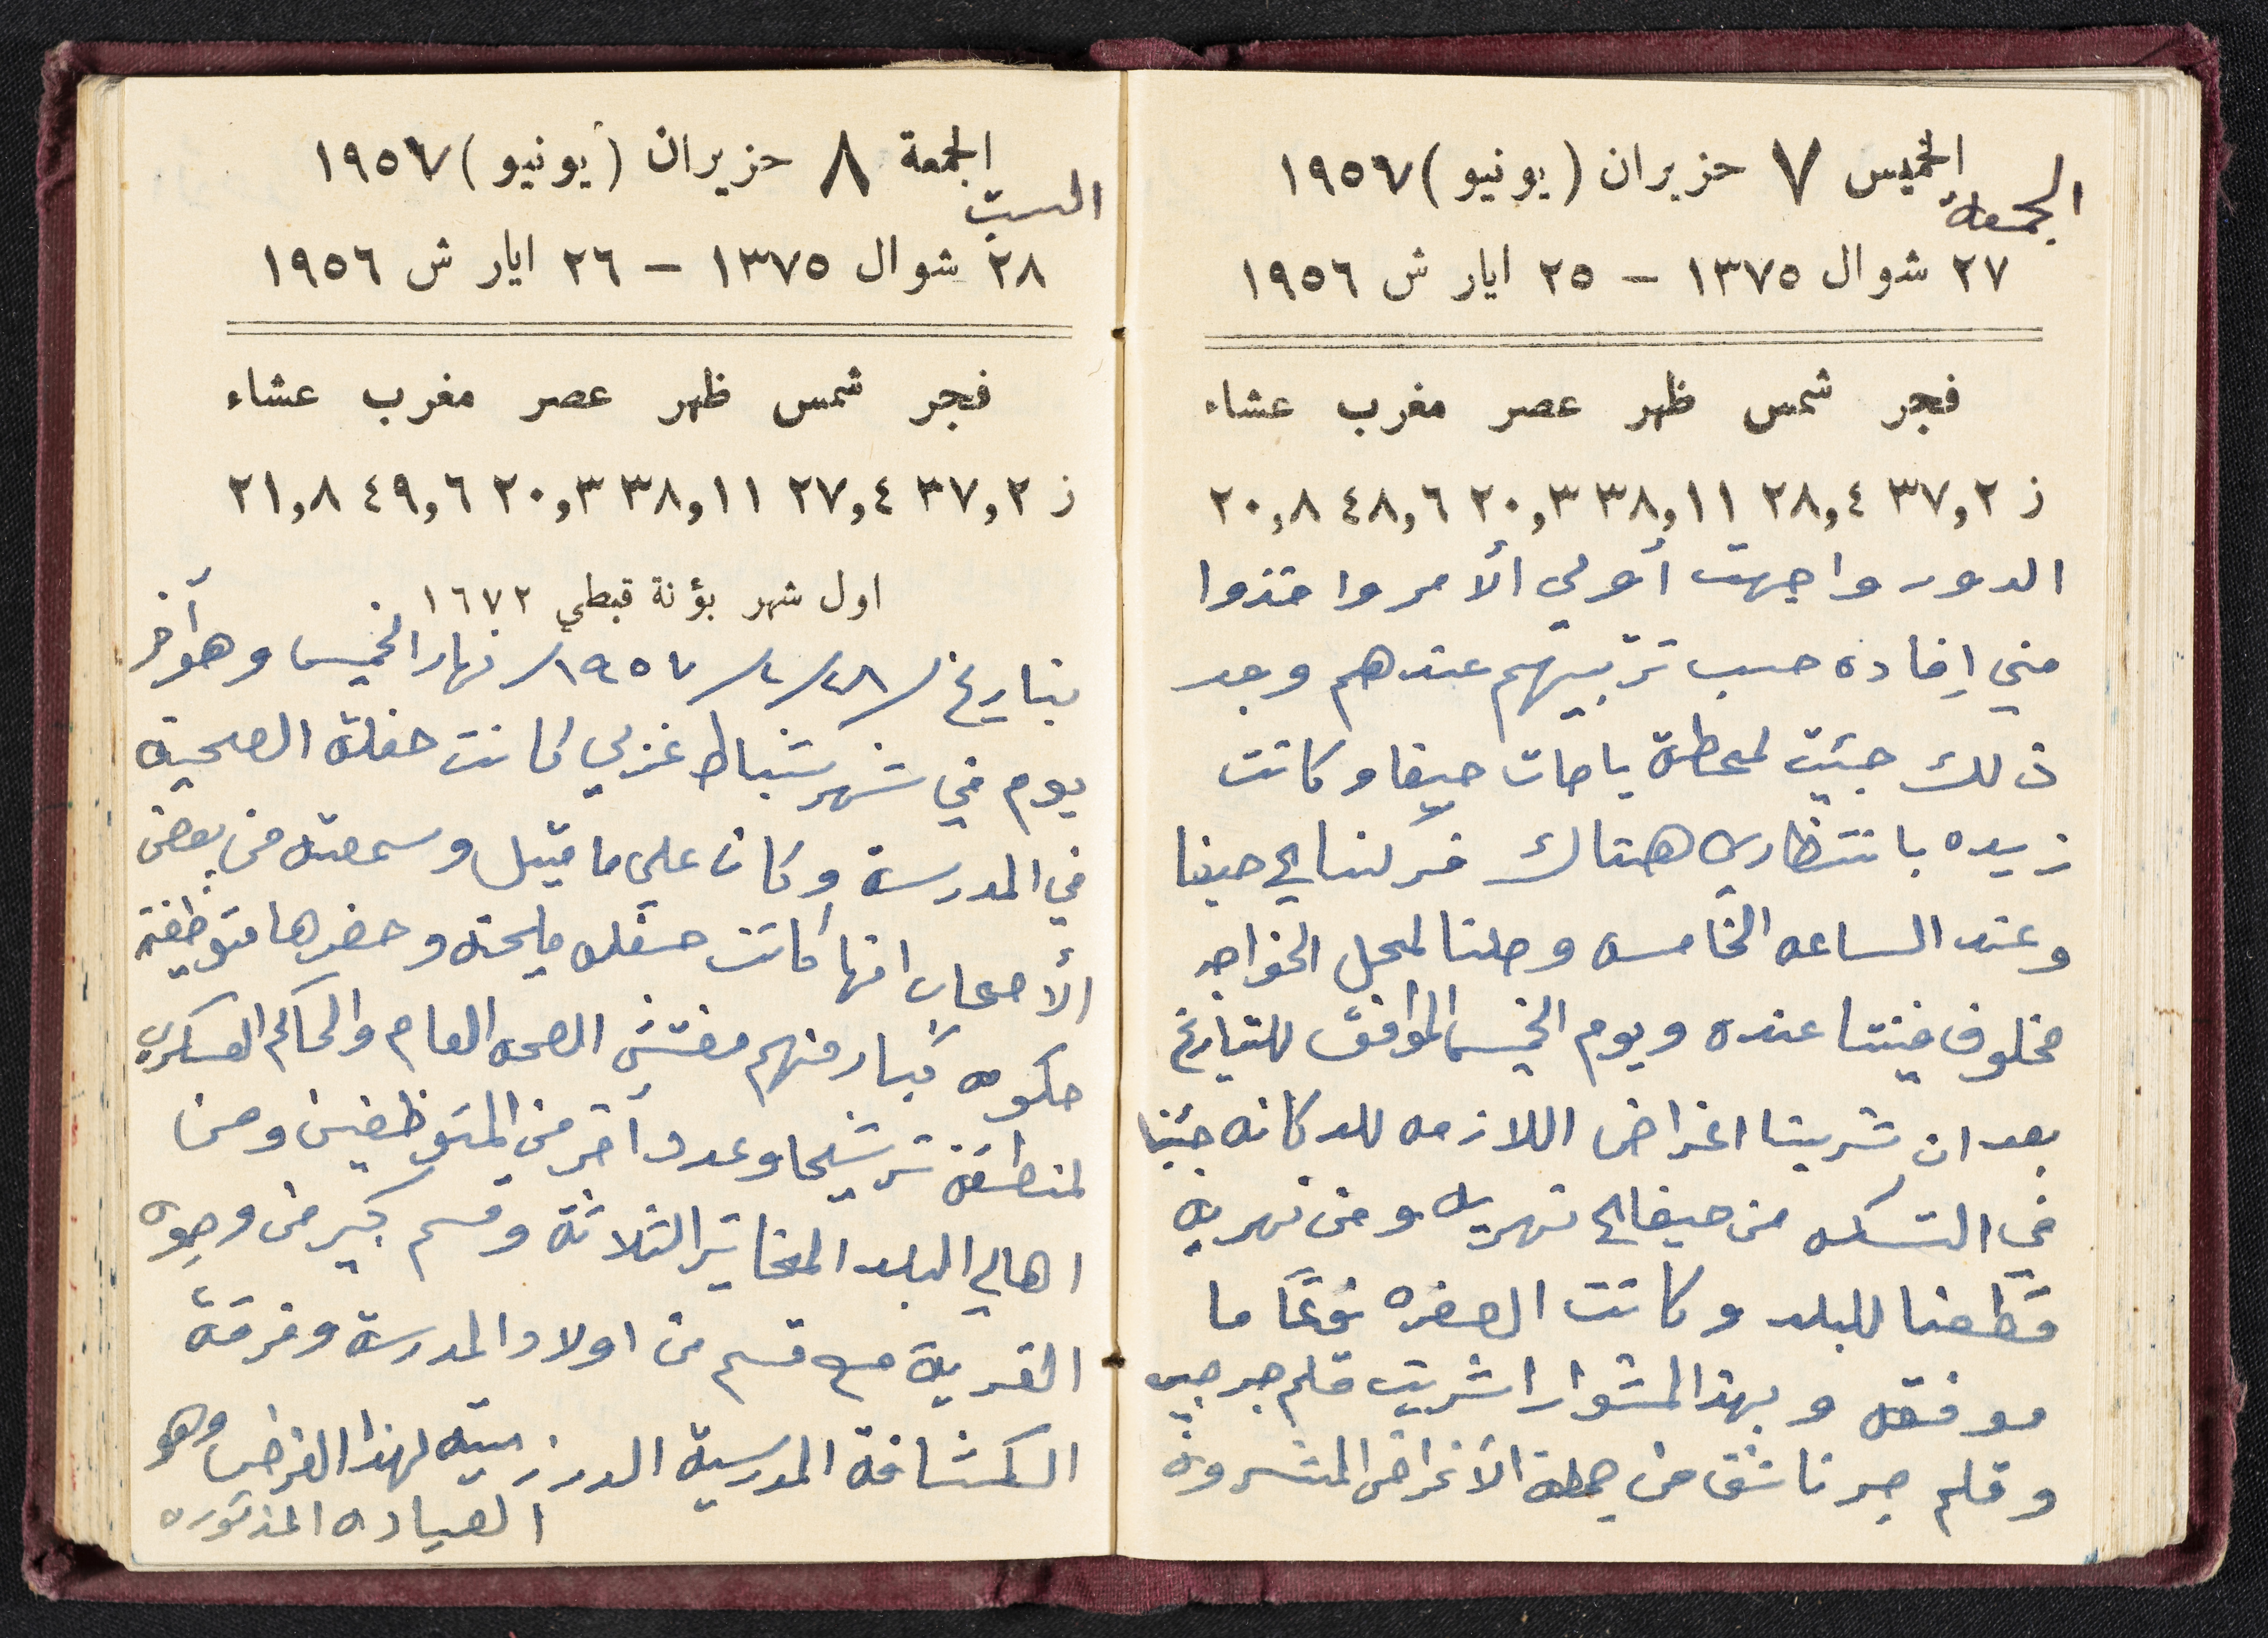 الخميس ٧ حزيران (يونيو) ١٩٥٧
الجمعة
٢٧ شوال ١٣٧٥ – ٢٥ ايار ش ١٩٥٦
فجر شمس ظهر عصر مغرب عشاء
ز ٣٧,٢ ٢٨,٤ ٣٨,١١ ٢٠,٣ ٤٨,٦ ٢٠,٨
الدور واجهت أولي ألأمر واخذوا
مني اِفاده حسب ترتيبهم عندهم وبعد
ذلك جئيت لمحطة باصات حيفا وكانت
زيده بانتظاري هناك فركبنا الى حيفا
وعند الساعه الخامسه وصلنا لمحل الخواجه
مخلوف فنمنا عنده ويوم الخميس الموافق للتيارخ
بعد ان شرينا اغراض اللازمه للدكانه جئينا
في التسكه من حيفا الى نهريه ومن نهريه
قطعنا للبلد وكانت الصفره نوعًا ما
موفقه وبهذا المشوار اشريت قلم حبر جيب
وقلم حبر ناشف من جملة الأغراض المشروه
الجمعة ٨ حزيران (يونيو) ١٩٥٧
السبت
٢٨ شوال ١٣٧٥ – ٢٦ ايار ش ١٩٥٦
فجر شمس ظهر عصر مغرب عشاء
ز ٣٧,٢ ٢٧,٤ ٣٨,١١ ٢٠,٣ ٤٩,٦ ٢١,٨
اول شهر بؤنة قبطي ١٦٧٢
بتاريخ /٢٨/٢/١٩٥٧/ نهار الخميس وهو آخر
يوم في شهر شباط غربي كانت حفلة الصحية
في المدرسة وكان على ما قيل وسمعته من بعض
ألأصحاب انها كانت حفله مليحه وحضرها متوظفين
حكومه كبار منهم مفتش الصحه العام والحاكم العسكري
لمنطقة ترشيحا وعدد أخر من المتوظفين ومن
اهالي البلد المخاتير الثلاثة وقسم كبير من وجوه
القرية مع قسم من اولاد المدرسة وفرقة
الكشافة المدرسية الدرزية لهذا الغرض وهو
العياده المذكوره